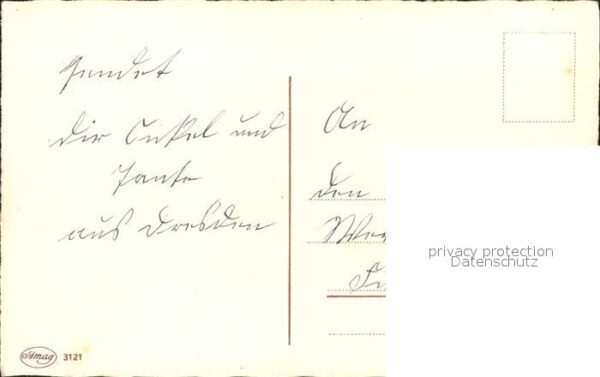 sendet
dir Onkel und
Tante
aus Dresden
An
den
Amag 3121
privacy protection
Datenschutz